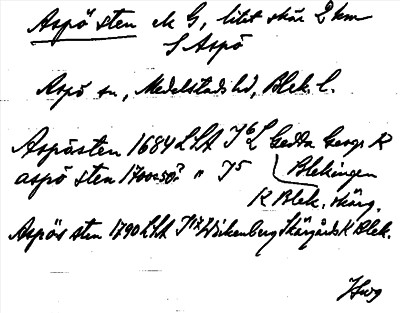 Aspö sten ek G, litet skär 2 km
S Aspö
Aspö sn, Medelstads hd, Blek l.
Aspösten 1684 LSA J6 L Gedda Geogr K
aspö sten 1700-50? " J5 Blekingen
K Blek. skärg.
Aspös sten 1790 LSA J17 Wikenberg Skärgårds K Blek.